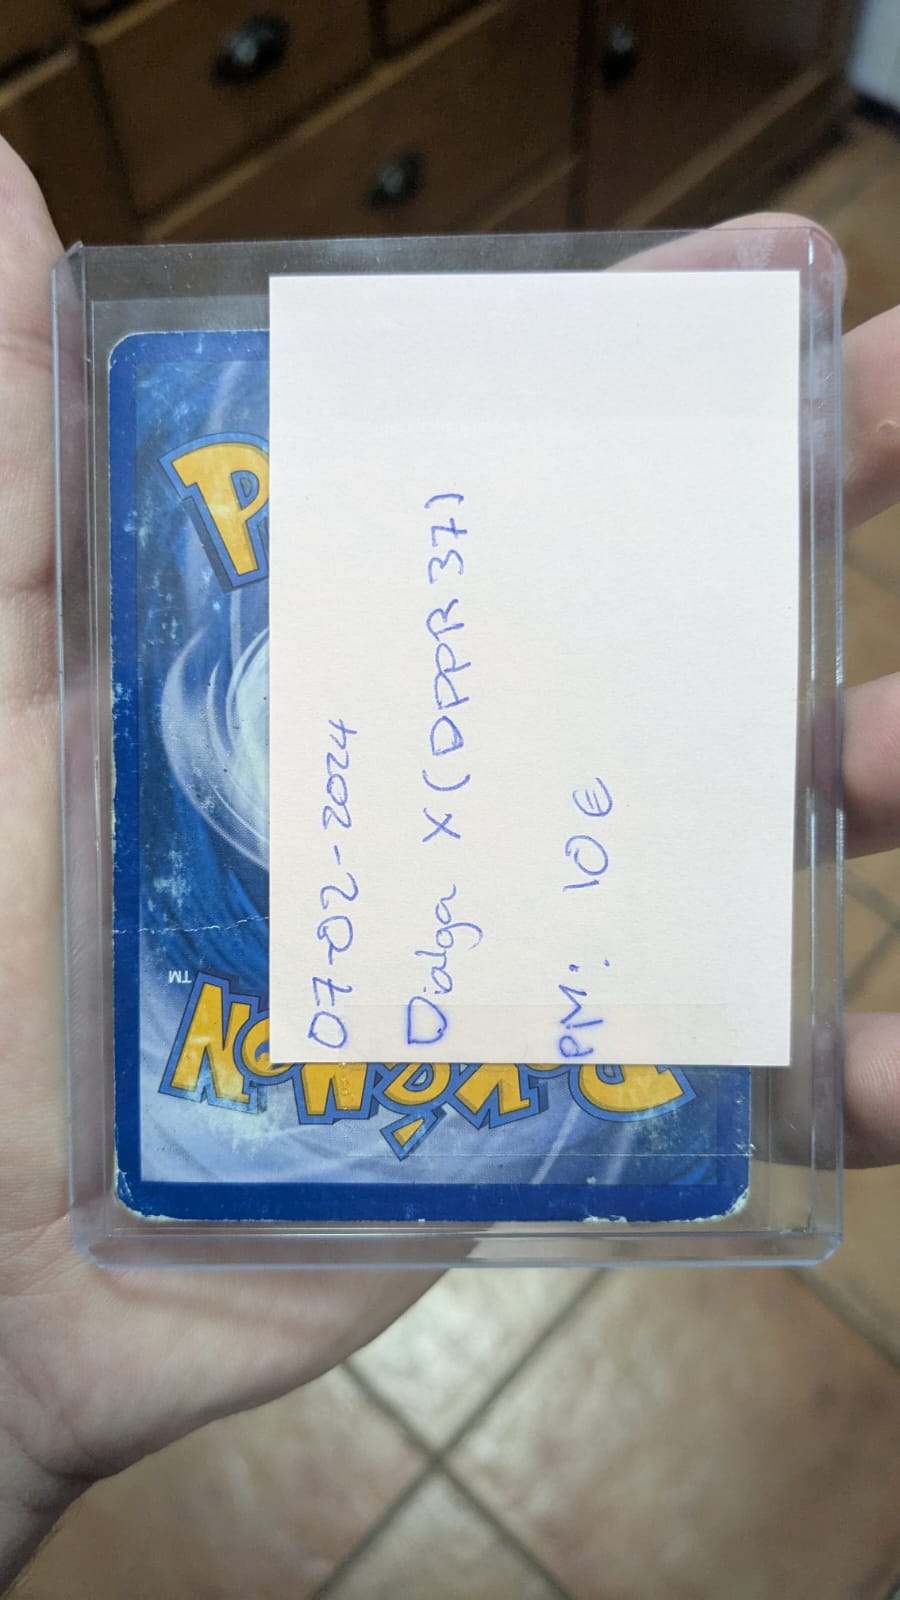 07-02-2024
Dialga X (DPPR 37)
PM: 10€
P
POKéMON
TM